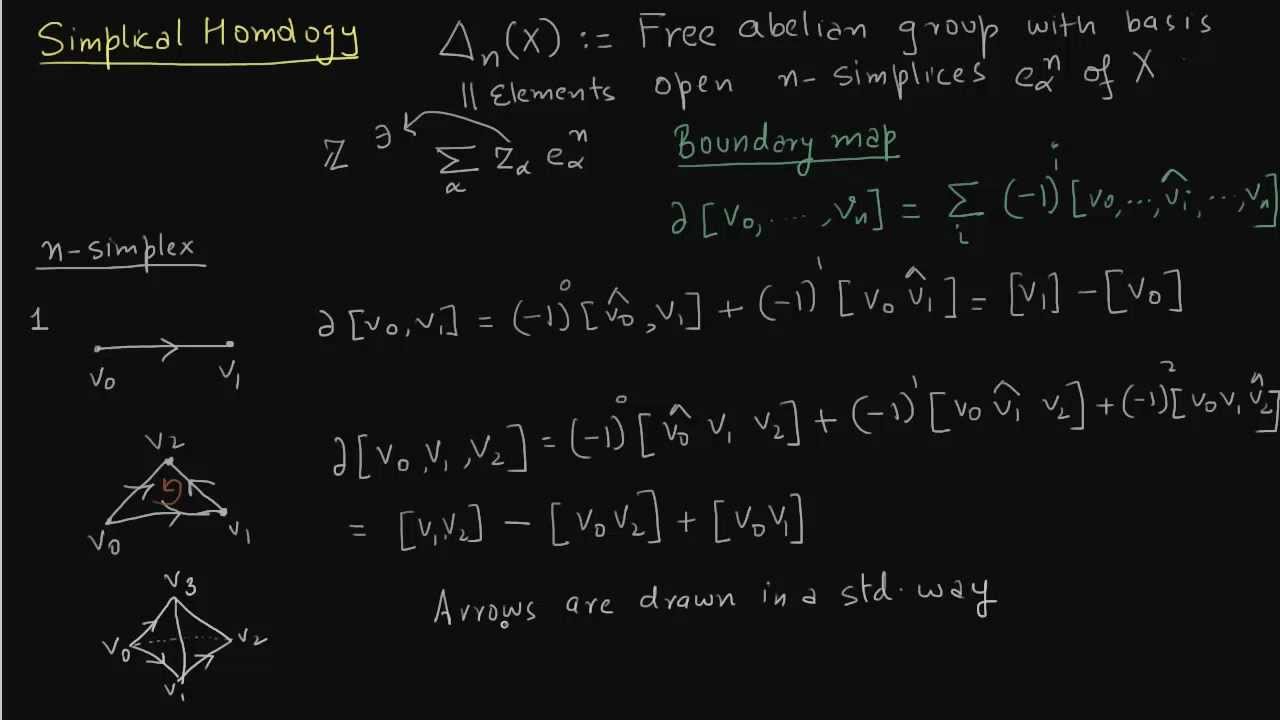 Simplical Homology
Δₙ(X) := Free abelian group with basis
|| Elements open n-simplices eαⁿ of X
ℤ ∋ Σ_α Z_α eαⁿ
Boundary map
∂[v₀, ....., vₙ] = Σ_i (-1)^i [v₀, ..., v̂ᵢ, ..., vₙ]
n-simplex
1
∂[v₀, v₁] = (-1)⁰ [v̂₀, v₁] + (-1)¹ [v₀ v̂₁] = [v₁] - [v₀]
v₀ v₁
∂[v₀, v₁, v₂] = (-1)⁰ [v̂₀ v₁ v₂] + (-1)¹ [v₀ v̂₁ v₂] + (-1)² [v₀ v₁ v̂₂]
v₂
v₀ v₁
= [v₁, v₂] - [v₀ v₂] + [v₀ v₁]
v₃
v₀ v₂
v₁
Arrows are drawn in a std. way